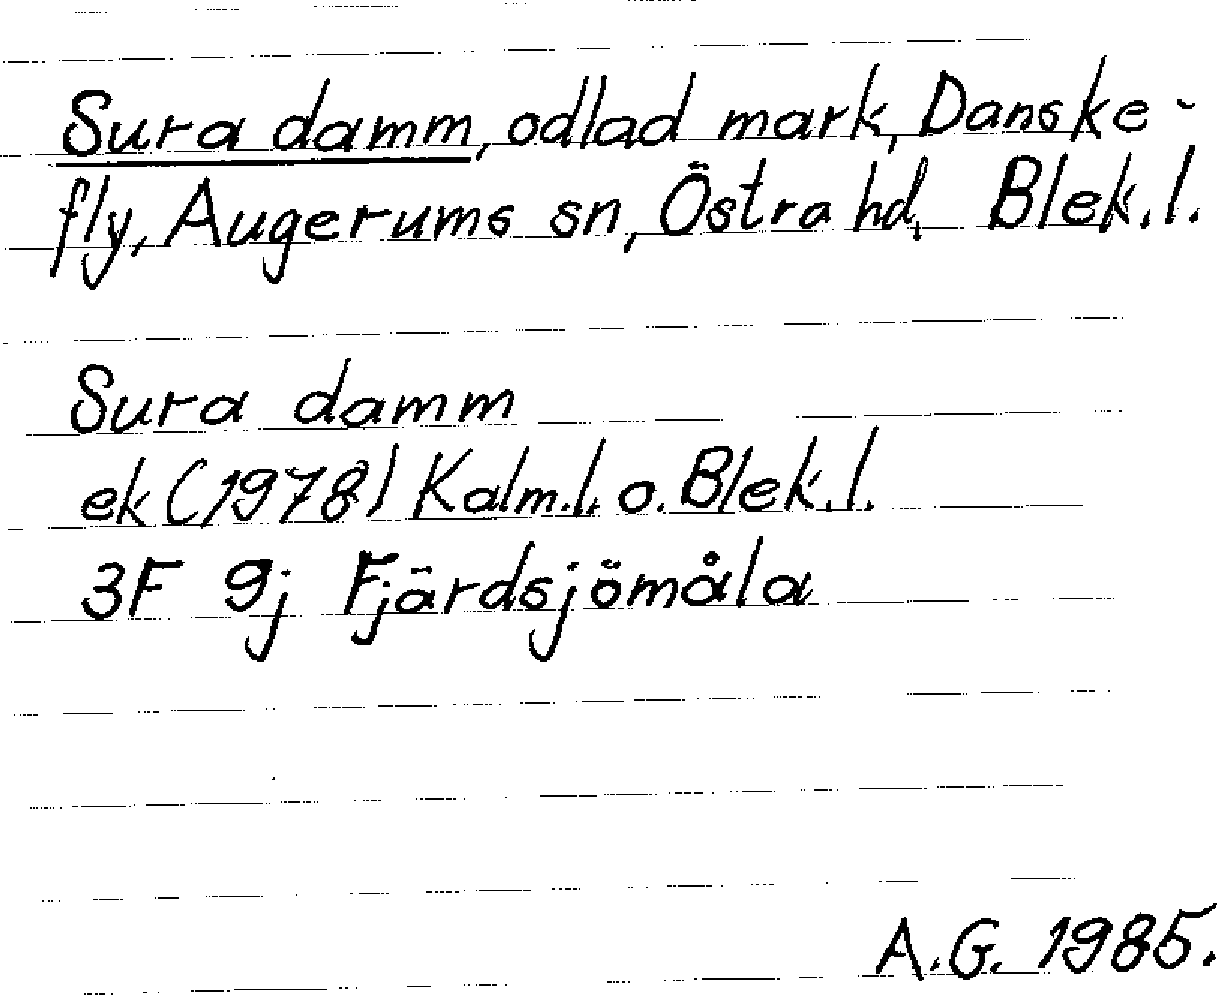 Sura damm, odlad mark, Danske-
fly, Augerums sn, Östra hd, Blek.l.
Sura damm
ek (1978) Kalm.l. o. Blek.l.
3F 9j Fjärdsjömåla
A.G. 1985.